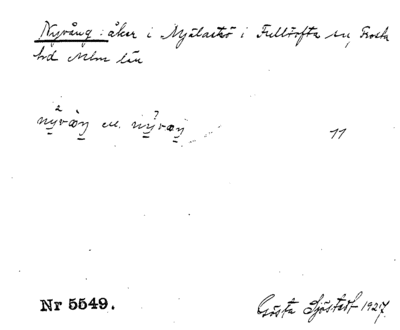 Nyvång: åker i Mjälastö i Fulltofta sn, Frosta
hd Mlm län
nyvåŋ el. nyvaŋ 11
Nr 5549. Gösta Sjöstedt 1927.